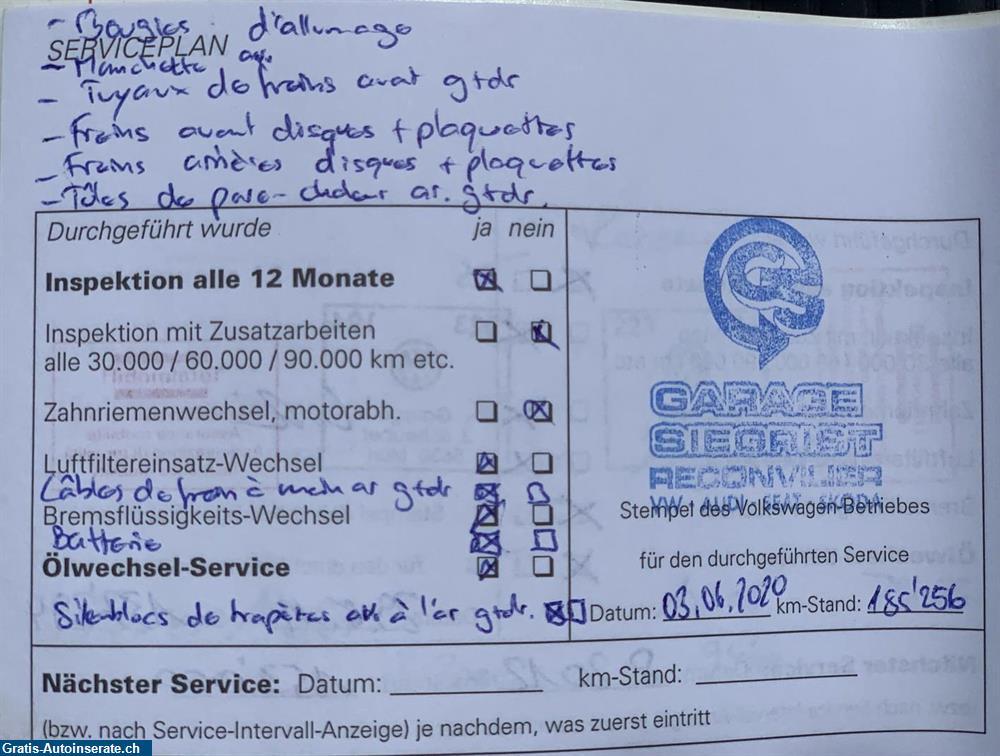 - Bougies d'allumage
SERVICEPLAN
- Manchette
- Tuyaux de freins avat gtdr
- Freins avant disques + plaquettes
- Freins arrières disques + plaquettes
- Tôles de pare-chaleur ar. gtdr.
Durchgeführt wurde ja nein
Inspektion alle 12 Monate
Inspektion mit Zusatzarbeiten
alle 30.000 / 60.000 / 90.000 km etc.
Zahnriemenwechsel, motorabh.
Luftfiltereinsatz-Wechsel
Câbles de frein à main ar gtdr
Bremsflüssigkeits-Wechsel
Batterie
Ölwechsel-Service
Silenblocs de trapètes à l'ar gtdr.
GARAGE
SIEGRIST
RECONVILIER
VW - AUDI - SEAT - SKODA
Stempel des Volkswagen-Betriebes
für den durchgeführten Service
Datum: 03.06.2020 km-Stand: 185'256
Nächster Service: Datum: km-Stand:
(bzw. nach Service-Intervall-Anzeige) je nachdem, was zuerst eintritt
Gratis-Autoinserate.ch